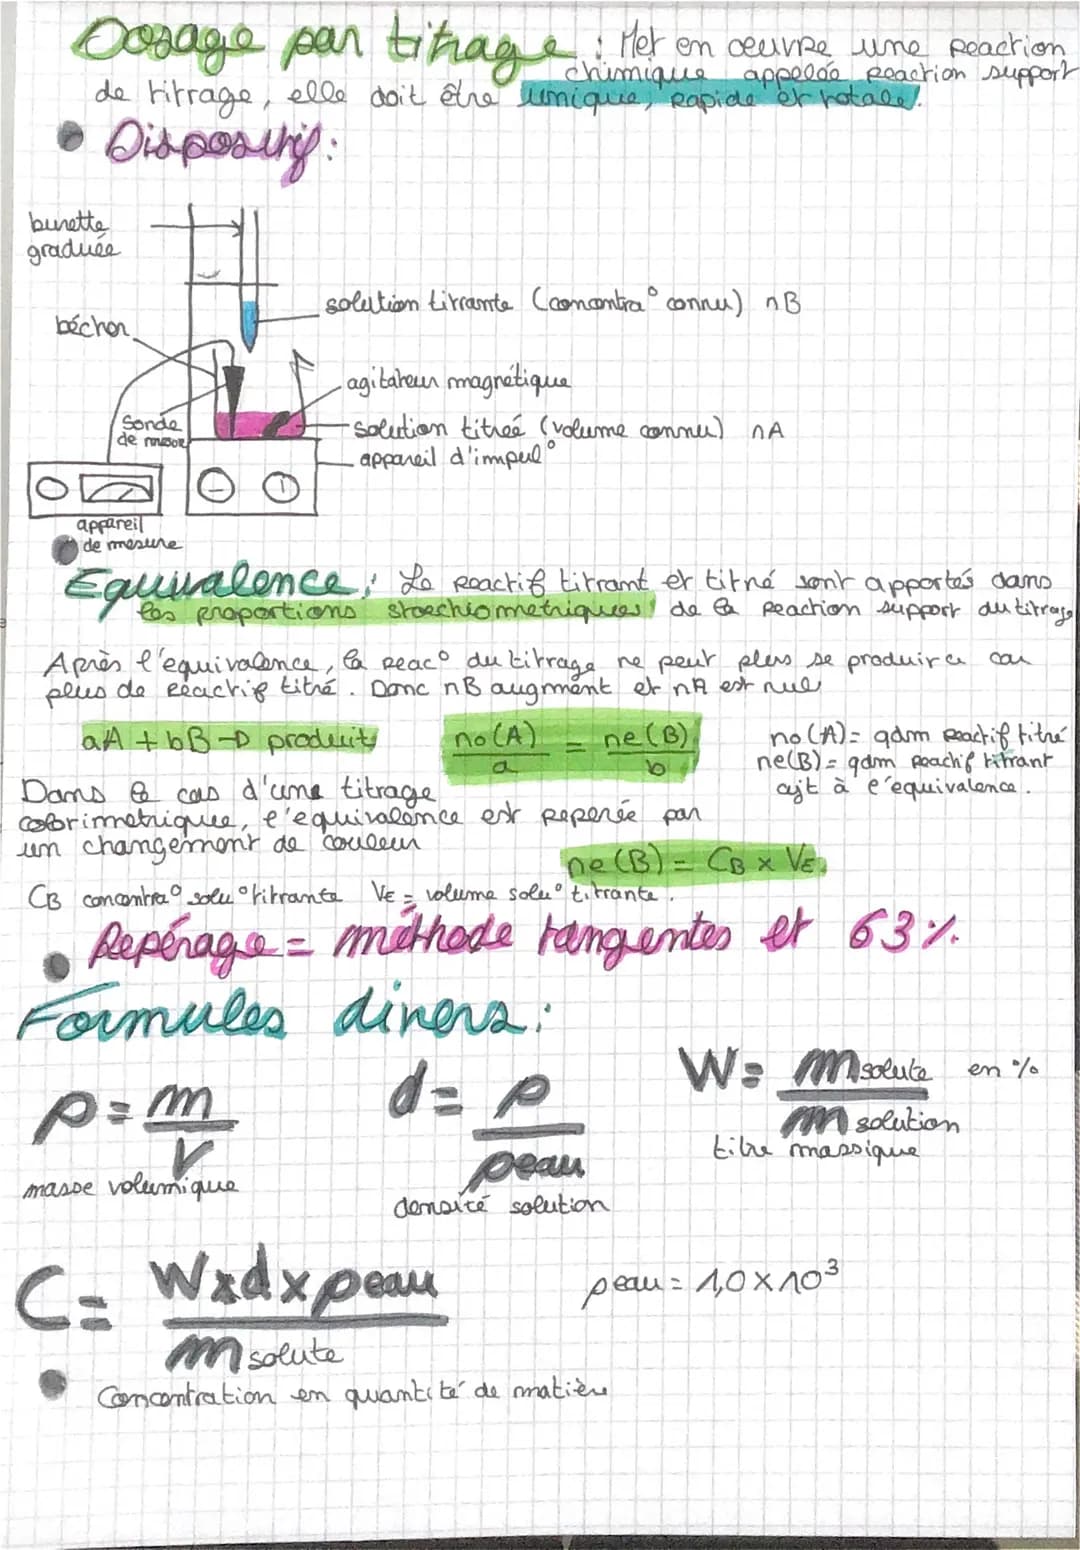 Dosage par titrage : Met en œuvre une reaction
chimique appelée reaction support
de titrage, elle doit être unique, rapide et totale.
Dispositif:
burette
graduée
solution titrante (concentra° connu) nB
bécher
agitateur magnétique
Sonde
de mesure
solution titrée (volume connu) nA
appareil d'impul°
appareil
de mesure
Equivalence: Le reactif titrant et titré sont apportés dans
les proportions stoechiometriques de la reaction support du titrage
Après l'équivalence, la reac° du titrage ne peut plus se produire car
plus de reactif titré. Donc nB augment et nA est nul
aA + bB → produit
no(A)/a = ne(B)/b
no(A)= qdm reactif titré
ne(B)= qdm reactif titrant
ajt à l'équivalence.
Dans le cas d'une titrage
colorimetrique, l'équivalence est reperée par
un changement de couleur
ne(B) = CB x VE
CB concentra° solu° titrante VE = volume solu° titrante.
Repérage = méthode tangentes et 63%
Formules diners:
ρ = m/V
masse volumique
d = ρ/ρeau
densité solution
W = m solute / m solution en %
titre massique
C = Wxdxρeau / m solute
ρeau = 1,0 x 10³
Concentration en quantité de matière